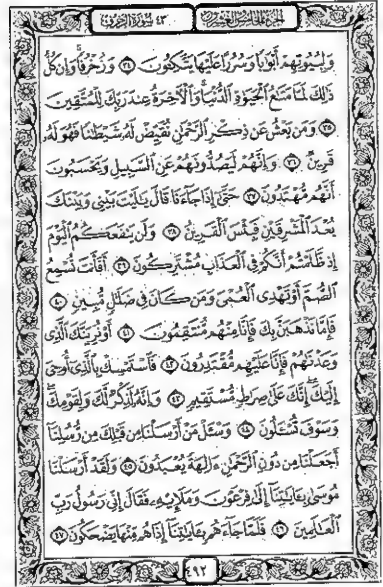 الجزء الخامس والعشرون
٤٣ سورة الزخرف
وَلِبُيُوتِهِمْ أَبْوَابًا وَسُرُرًا عَلَيْهَا يَتَّكِـُٔونَ ٣٤ وَزُخْرُفًا وَإِن كُلُّ
ذَٰلِكَ لَمَّا مَتَـٰعُ ٱلْحَيَوٰةِ ٱلدُّنْيَا وَٱلْـَٔاخِرَةُ عِندَ رَبِّكَ لِلْمُتَّقِينَ
٣٥ وَمَن يَعْشُ عَن ذِكْرِ ٱلرَّحْمَـٰنِ نُقَيِّضْ لَهُۥ شَيْطَـٰنًا فَهُوَ لَهُۥ
قَرِينٌ ٣٦ وَإِنَّهُمْ لَيَصُدُّونَهُمْ عَنِ ٱلسَّبِيلِ وَيَحْسَبُونَ
أَنَّهُم مُّهْتَدُونَ ٣٧ حَتَّىٰٓ إِذَا جَآءَنَا قَالَ يَـٰلَيْتَ بَيْنِى وَبَيْنَكَ
بُعْدَ ٱلْمَشْرِقَيْنِ فَبِئْسَ ٱلْقَرِينُ ٣٨ وَلَن يَنفَعَكُمُ ٱلْيَوْمَ
إِذ ظَّلَمْتُمْ أَنَّكُمْ فِى ٱلْعَذَابِ مُشْتَرِكُونَ ٣٩ أَفَأَنتَ تُسْمِعُ
ٱلصُّمَّ أَوْ تَهْدِى ٱلْعُمْىَ وَمَن كَانَ فِى ضَلَـٰلٍ مُّبِينٍ ٤٠
فَإِمَّا نَذْهَبَنَّ بِكَ فَإِنَّا مِنْهُم مُّنتَقِمُونَ ٤١ أَوْ نُرِيَنَّكَ ٱلَّذِى
وَعَدْنَـٰهُمْ فَإِنَّا عَلَيْهِم مُّقْتَدِرُونَ ٤٢ فَٱسْتَمْسِكْ بِٱلَّذِىٓ أُوحِىَ
إِلَيْكَ إِنَّكَ عَلَىٰ صِرَٰطٍ مُّسْتَقِيمٍ ٤٣ وَإِنَّهُۥ لَذِكْرٌ لَّكَ وَلِقَوْمِكَ
وَسَوْفَ تُسْـَٔلُونَ ٤٤ وَسْـَٔلْ مَنْ أَرْسَلْنَا مِن قَبْلِكَ مِن رُّسُلِنَآ
أَجَعَلْنَا مِن دُونِ ٱلرَّحْمَـٰنِ ءَالِهَةً يُعْبَدُونَ ٤٥ وَلَقَدْ أَرْسَلْنَا
مُوسَىٰ بِـَٔايَـٰتِنَآ إِلَىٰ فِرْعَوْنَ وَمَلَإِي۟هِۦ فَقَالَ إِنِّى رَسُولُ رَبِّ
ٱلْعَـٰلَمِينَ ٤٦ فَلَمَّا جَآءَهُم بِـَٔايَـٰتِنَآ إِذَا هُم مِّنْهَا يَضْحَكُونَ ٤٧
٤٩٢